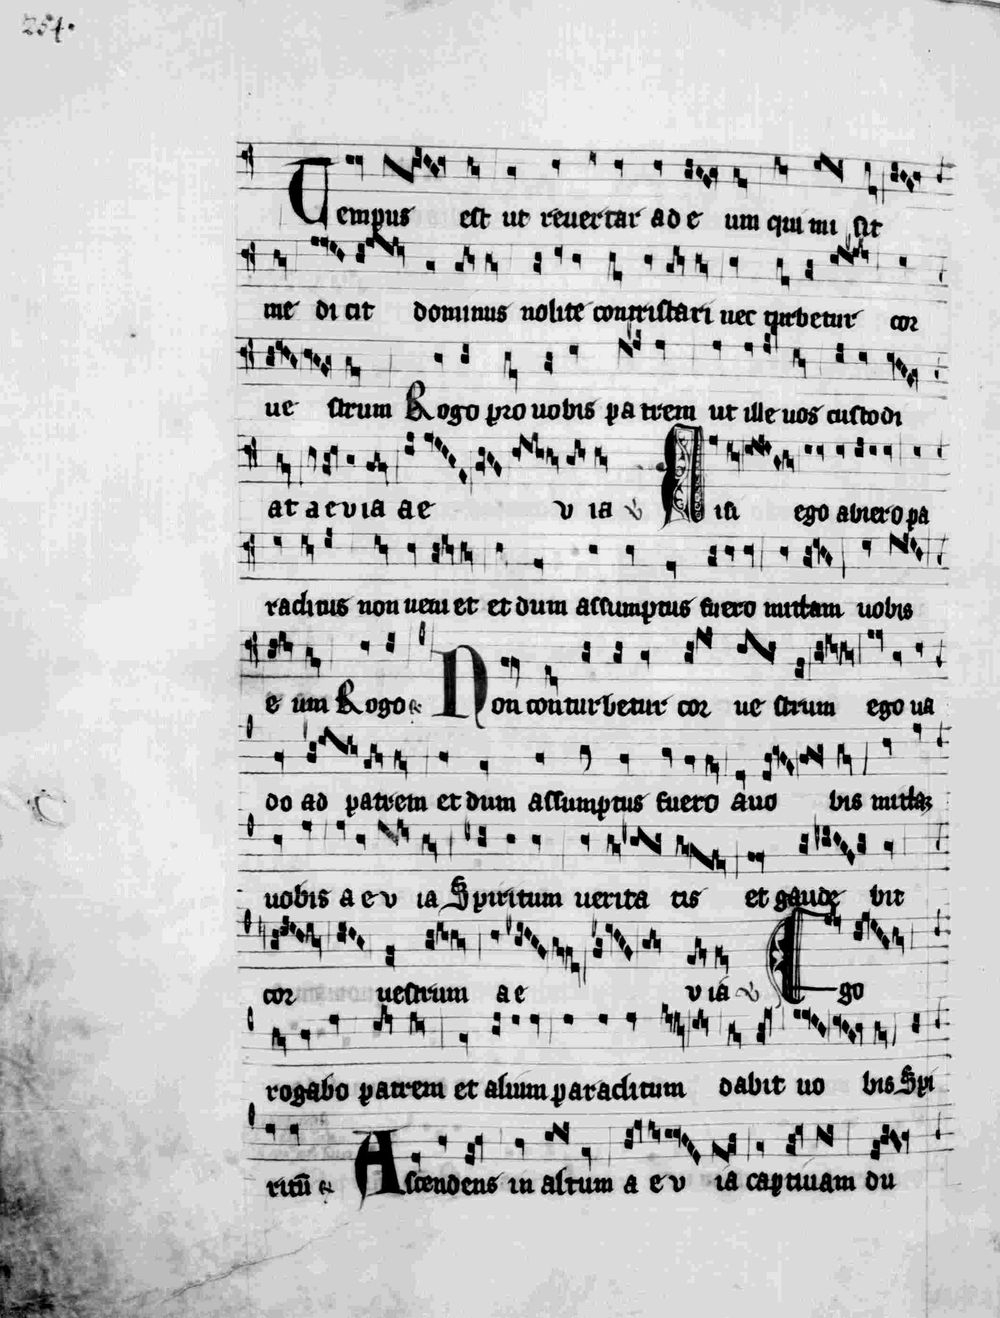 254.
Tempus est ut revertar ad e um qui mi sit
me di cit dominus nolite contristari nec turbetur cor
ue strum Rogo pro uobis pa trem ut ille uos custodi
at a e v ia a e v ia V Nisi ego abiero pa
raclitus non ueni et et dum assumptus fuero mittam uobis
e um Rogo Non conturbetur cor ue strum ego ua
do ad patrem et dum assumptus fuero a uo bis mittaz
uobis a e v ia Spiritum uerita tis et gaude bit
cor uestrum a e v ia V Ego
rogabo patrem et alium paraclitum dabit uo bis Spi
ritū Ascendens in altum a e v ia captiuam du